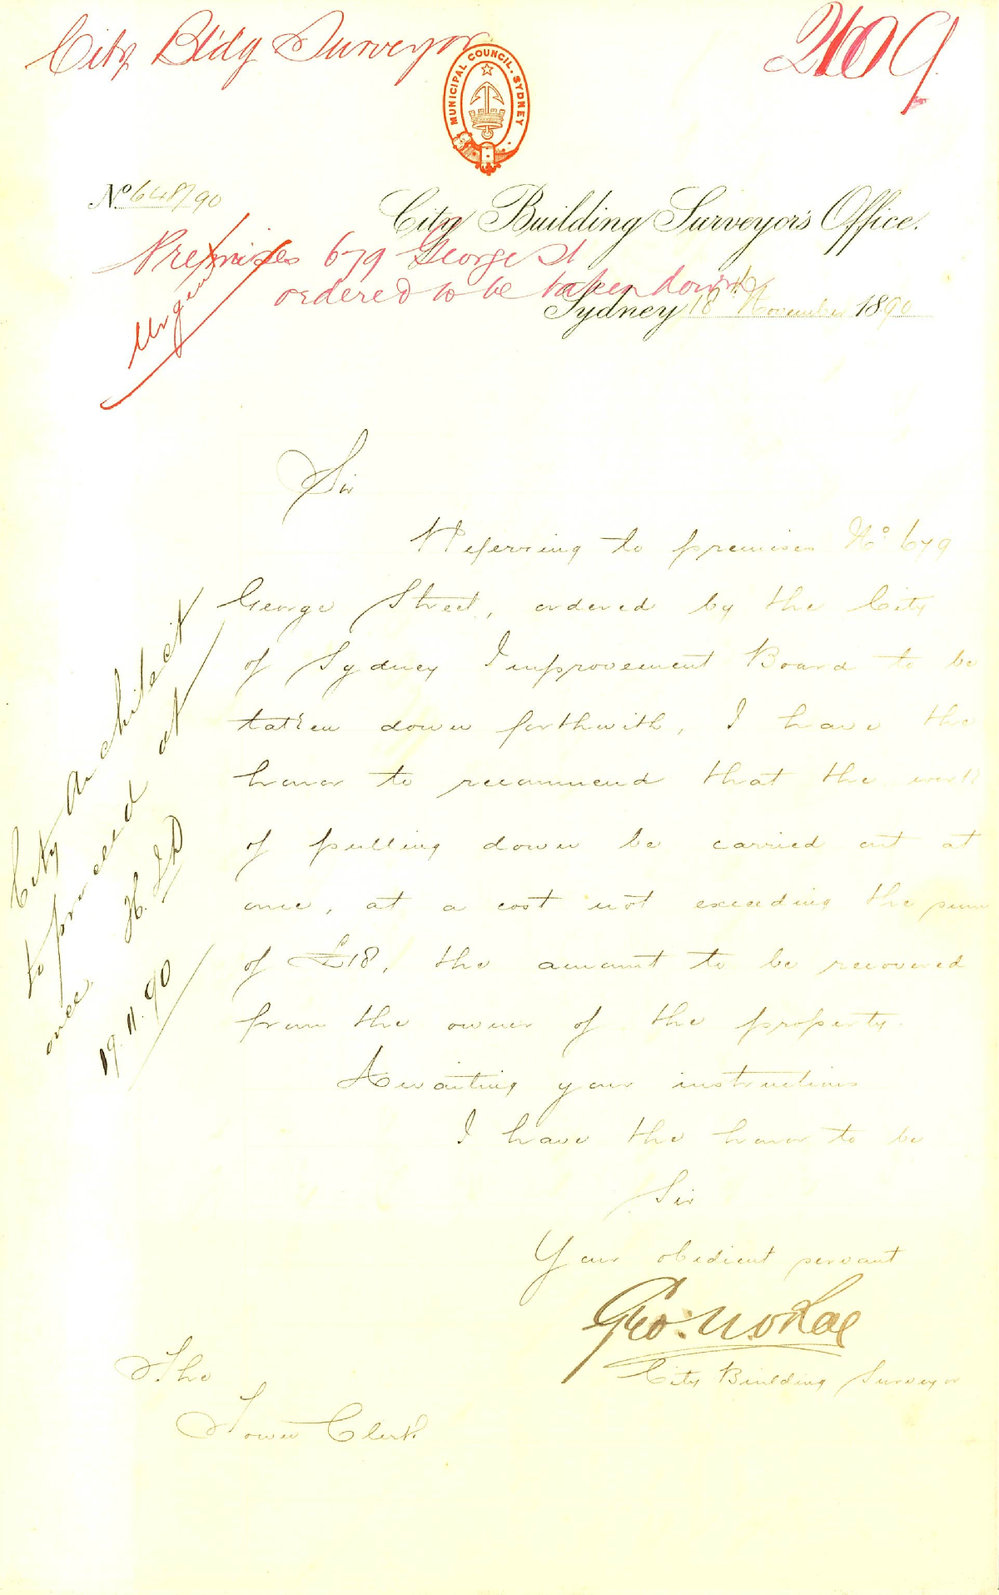 City Bldg Surveyor
2109
MUNICIPAL COUNCIL. SYDNEY
No 648/90
City Building Surveyor's Office.
Premises 679 George St
ordered to be taken down
Urgent
Sydney 18th November 1890
Sir
Referring to premises No 679
George Street, ordered by the City
of Sydney Improvement Board to be
taken down forthwith, I have the
honor to recommend that the work
of pulling down be carried out at
once, at a cost not exceeding the sum
of £18, the amount to be recovered
from the owner of the property.
Awaiting your instructions
I have the honor to be
Sir
Your obedient servant
Geo:
City Building Surveyor
The
Town Clerk
City Architect
to proceed at
once
19.11.90